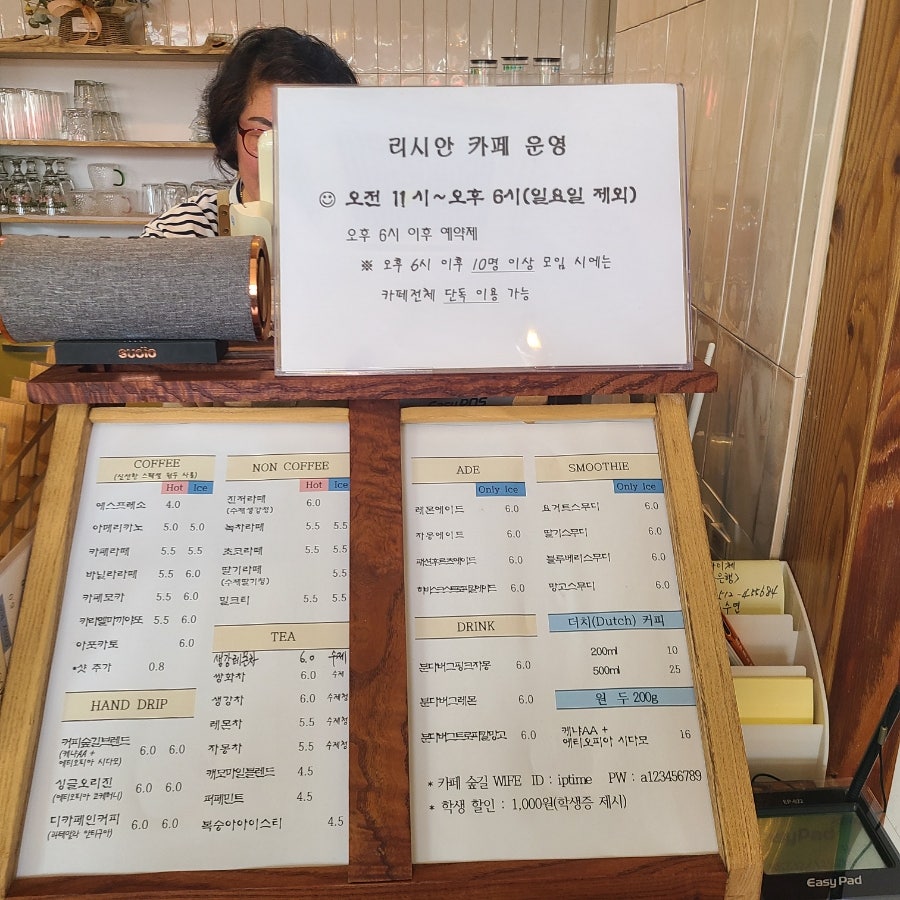 리시안 카페 운영
☺ 오전 11시~오후 6시(일요일 제외)
오후 6시 이후 예약제
※ 오후 6시 이후 10명 이상 모임 시에는
카페전체 단독 이용 가능
sudio
EasyPOS
COFFEE
(신선한 스페셜 원두 사용)
Hot Ice
에스프레소 4.0
아메리카노 5.0 5.0
카페라떼 5.5 5.5
바닐라라떼 5.5 6.0
카페모카 5.5 6.0
카라멜마끼아또 5.5 6.0
아포카토 6.0
*샷 추가 0.8
HAND DRIP
커피숲길브렌드 6.0 6.0
(케냐AA +
에티오피아 시다모)
싱글오리진 6.0 6.0
(에티오피아 코케허니)
디카페인커피 6.0 6.0
(과테말라 안티구아)
NON COFFEE
Hot Ice
진저라떼 6.0
(수제생강청)
녹차라떼 5.5 5.5
초코라떼 5.5 5.5
딸기라떼 5.5
(수제딸기청)
밀크티 5.5 5.5
TEA
생강레몬차 6.0 수제
쌍화차 6.0 수제
생강차 6.0 수제청
레몬차 5.5 수제청
자몽차 5.5 수제청
캐모마일블렌드 4.5
페퍼민트 4.5
복숭아아이스티 4.5
ADE
Only Ice
레몬에이드 6.0
자몽에이드 6.0
패션후르츠에이드 6.0
6.0
DRINK
분다버그핑크자몽 6.0
분다버그레몬 6.0
분다버그트로피칼망고 6.0
SMOOTHIE
Only Ice
요거트스무디 6.0
딸기스무디 6.0
블루베리스무디 6.0
망고스무디 6.0
더치(Dutch) 커피
200ml 10
500ml 25
원 두 200g
케냐AA +
에티오피아 시다모 16
* 카페 숲길 WIFE ID : iptime PW : a123456789
* 학생 할인 : 1,000원(학생증 제시)
이체
은행>
512-455684
수연
EasyPad